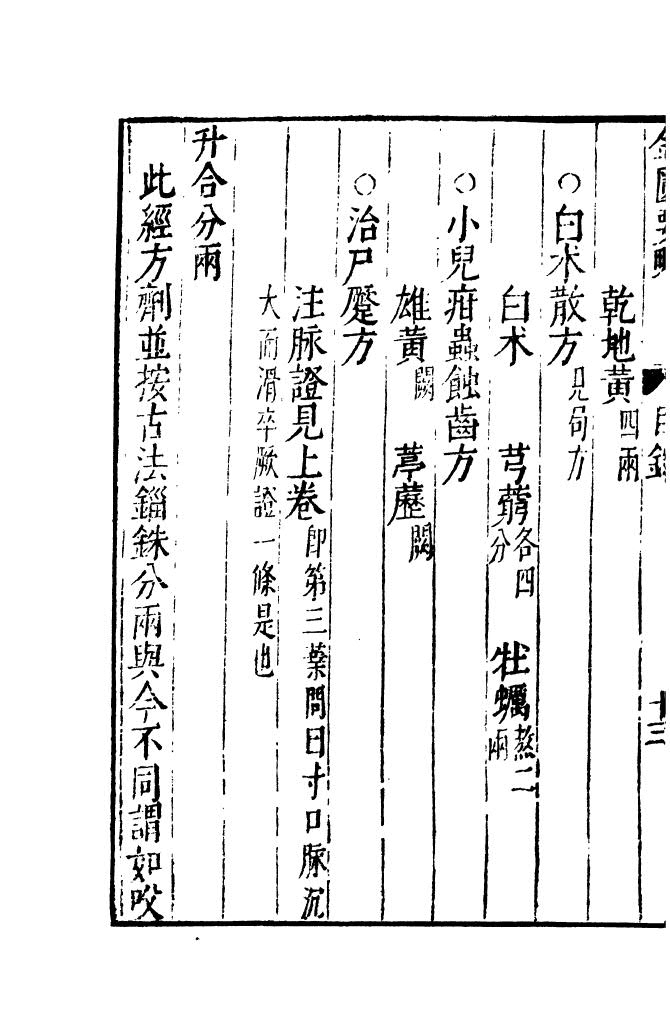 金匱要略 目錄 十三
乾地黃四兩
○白术散方見局方
白术 芎藭各四分 牡蠣熬二兩
○小兒疳蟲蝕齒方
雄黃闕 葶藶闕
○治尸蹷方
注脉證見上卷即第三葉問曰寸口脉沉
大而滑卒厥證一條是也
升合分兩
此經方劑並按古法錙銖分兩與今不同謂如㕮